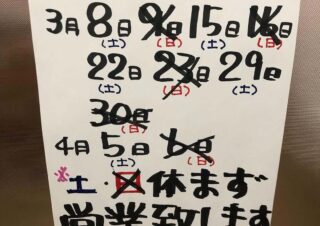 3月8日 9日 15日 16日
(土) (日) (土) (日)
22日 23日 29日
(土) (日) (土)
30日
(日)
4月5日 6日
(土) (日)
※土・日休まず
営業致します